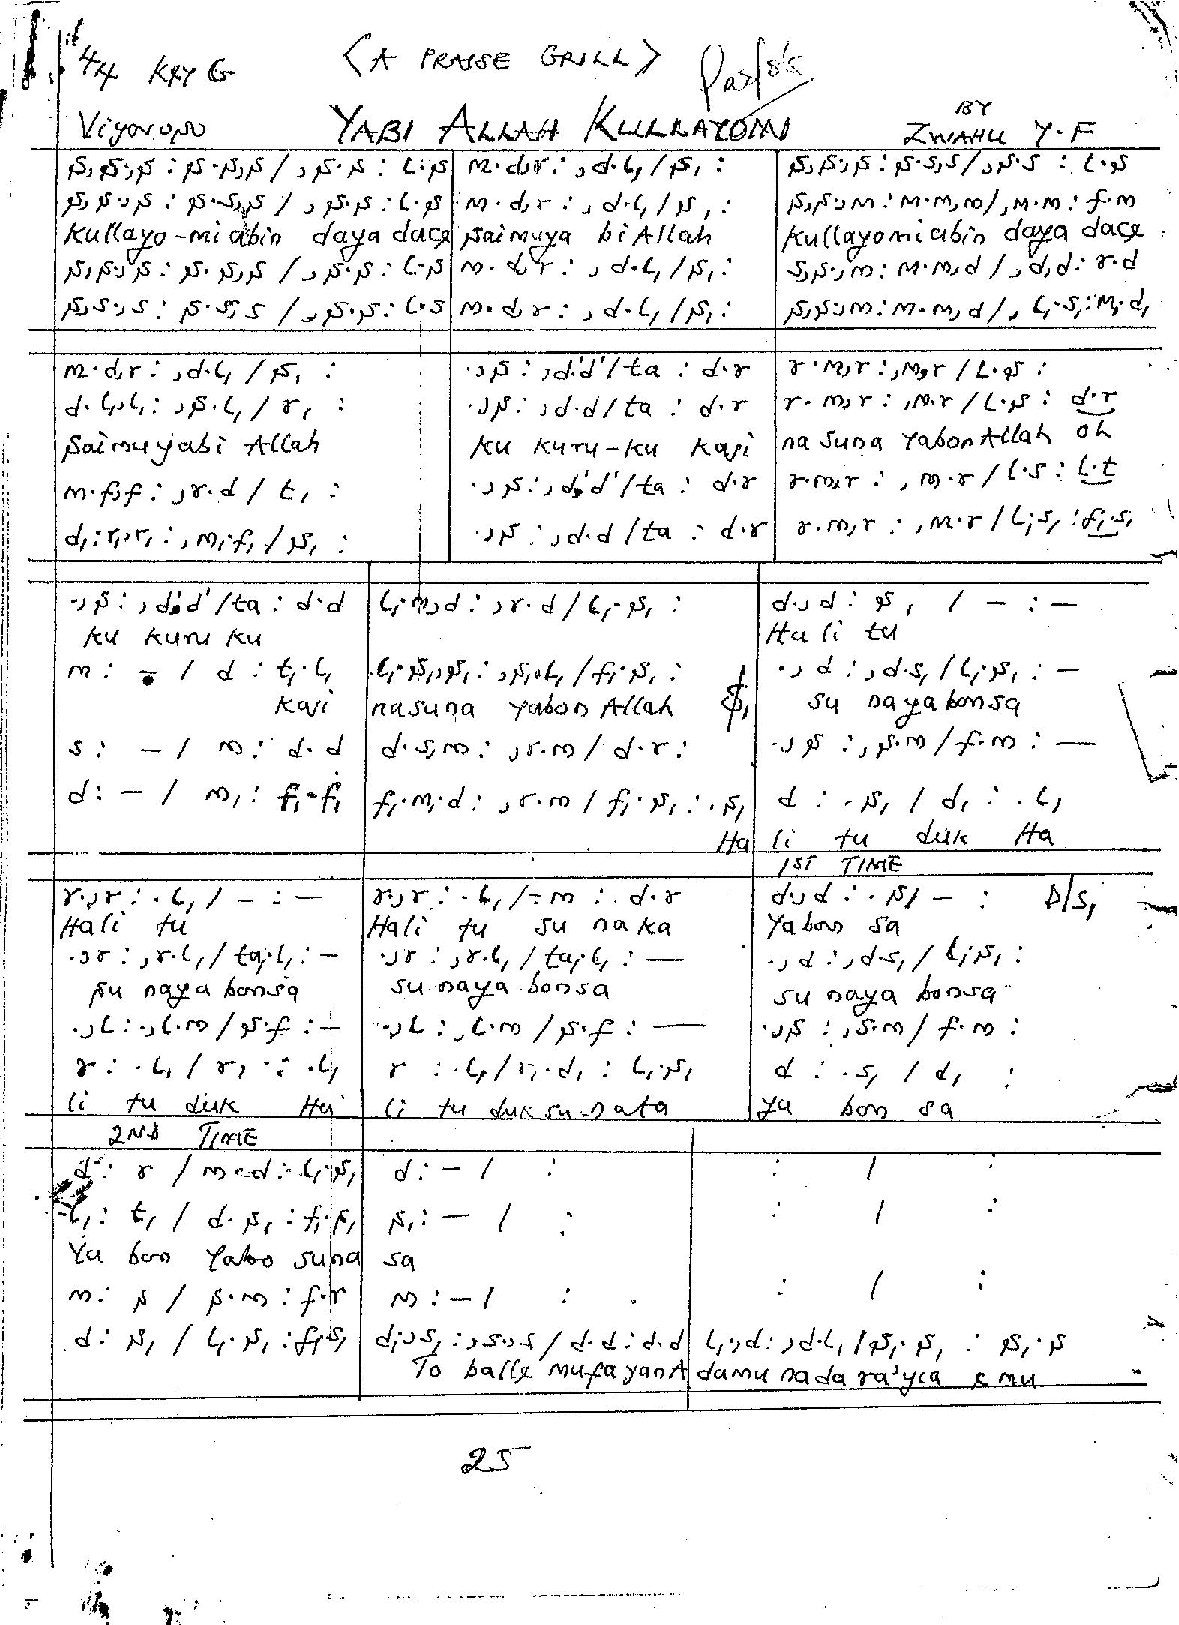 4/4 KEY G
(A PRAISE GRILL)
Vigoroso
YABI ALLAH KULLAYOMI
BY
ZWAHU Y.F
s,s.,s : s.s,s / ,s.s : l.s | m.d,r : ,d.l, / s, : | s,s.,s : s.s,s / ,s.s : l.s
s,s.,s : s.s,s / ,s.s : l.s | m.d,r : ,d.l, / s, : | s,s.,m : m.m,m / ,m.m : f.m
Kullayo-mi abin daya dace | Saimuya bi Allah | Kullayomi abin daya dace
s,s.,s : s.s,s / ,s.s : l.s | m.d,r : ,d.l, / s, : | s,s.,m : m.m,d / ,d,d : r.d
s,s.,s : s.s,s / ,s.s : l.s | m.d,r : ,d.l, / s, : | s,s.,m : m.m,d / ,l,.s, : m,.d,
m.d,r : ,d.l, / s, : | .,s : ,d'd' / ta : d.r | r.m,r : ,m,r / l.s :
d.l,l, : ,s.l, / r, : | .,s : ,d.d / ta : d.r | r.m,r : ,m.r / l.s : d.r
Saimuyabi Allah | Ku kuru-ku kaji | na suna Yabon Allah Oh
m.f,f : ,r.d / t, : | .,s : ,d'd' / ta : d.r | r.m,r : ,m.r / l.s : l.t
d, : r,.r, : ,m,.f, / s, : | .,s : ,d.d / ta : d.r | r.m,r : ,m.r / l,.s, : f,.s,
.,s : ,d'd' / ta : d.d | l,.m,d : ,r.d / l,.s, : | d.,d : s, / – : –
Ku kuru ku | Ha li tu
m : – / d : t,.l, | l,.s,,s, : ,s,.l, / f,.s, : | .,d : ,d.s, / l,.s, : –
Kaji | nasuna Yabon Allah | su nayabonsa
s : – / m : d.d | d.s,m : ,r.m / d.r : | .,s : ,s.m / f.m : –
d : – / m, : f,.f, | f,.m,.d : ,r.m / f,.s, : .s, | d : .s, / d, : .l,
Ha | li tu duk Ha
1ST TIME
r.,r : .l, / – : – | r.,r : .l, / – m : d.r | d.,d : .s, / – : D/S,
Hali tu | Hali tu su na ka | Yabon sa
.,r : ,r.l, / ta,.l, : – | .,r : ,r.l, / ta,.l, : – | .,d : ,d.s, / l,.s, :
su naya bonsa | su naya bonsa | su naya bonsa
.,l : .,l.m / s.f : – | .,l : ,l.m / s.f : – | .,s : ,s.m / f.m :
r : .l, / r, : .l, | r : .l, / r,.d, : l,.s, | d : .s, / d, :
li tu duk Ha | li tu duk su nata | Ya bon sa
2ND TIME
d : r / m.d : l,.s, | d : – / : | : / :
l, : t, / d.s, : f,.s, | s, : – / : | : / :
Ya bon Yabo suna | sa
m : s / s.m : f.r | m : – / : . | : / :
d : s, / l,.s, : f,.s, | d,.,s, : ,s.,s / d.d : d.d | l,.,d : ,d.l, / s,.s, : s,.s
To balle mufa yan A | damu nada ra'yia e mu
25